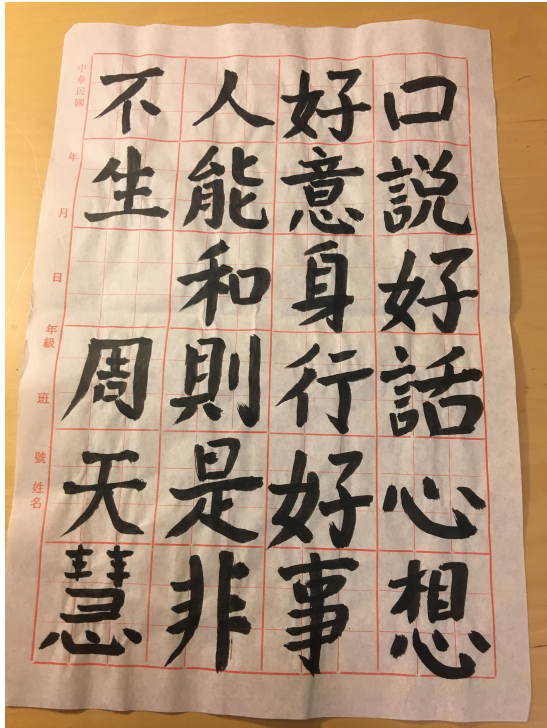 口說好話心想
好意身行好事
人能和則是非
不生 周天慧
中華民國 年 月 日 年級 班 號 姓名